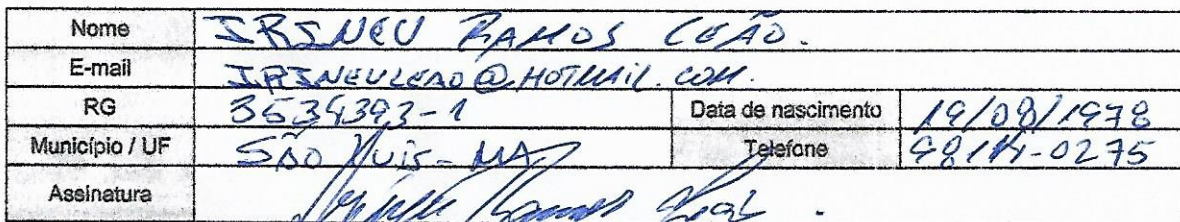 Nome IRINEU RAMOS LEÃO.
E-mail IRINEULEAO@HOTMAIL.COM.
RG 3534393-1 Data de nascimento 19/08/1978
Município / UF SÃO LUIS-MA Telefone 98114-0275
Assinatura